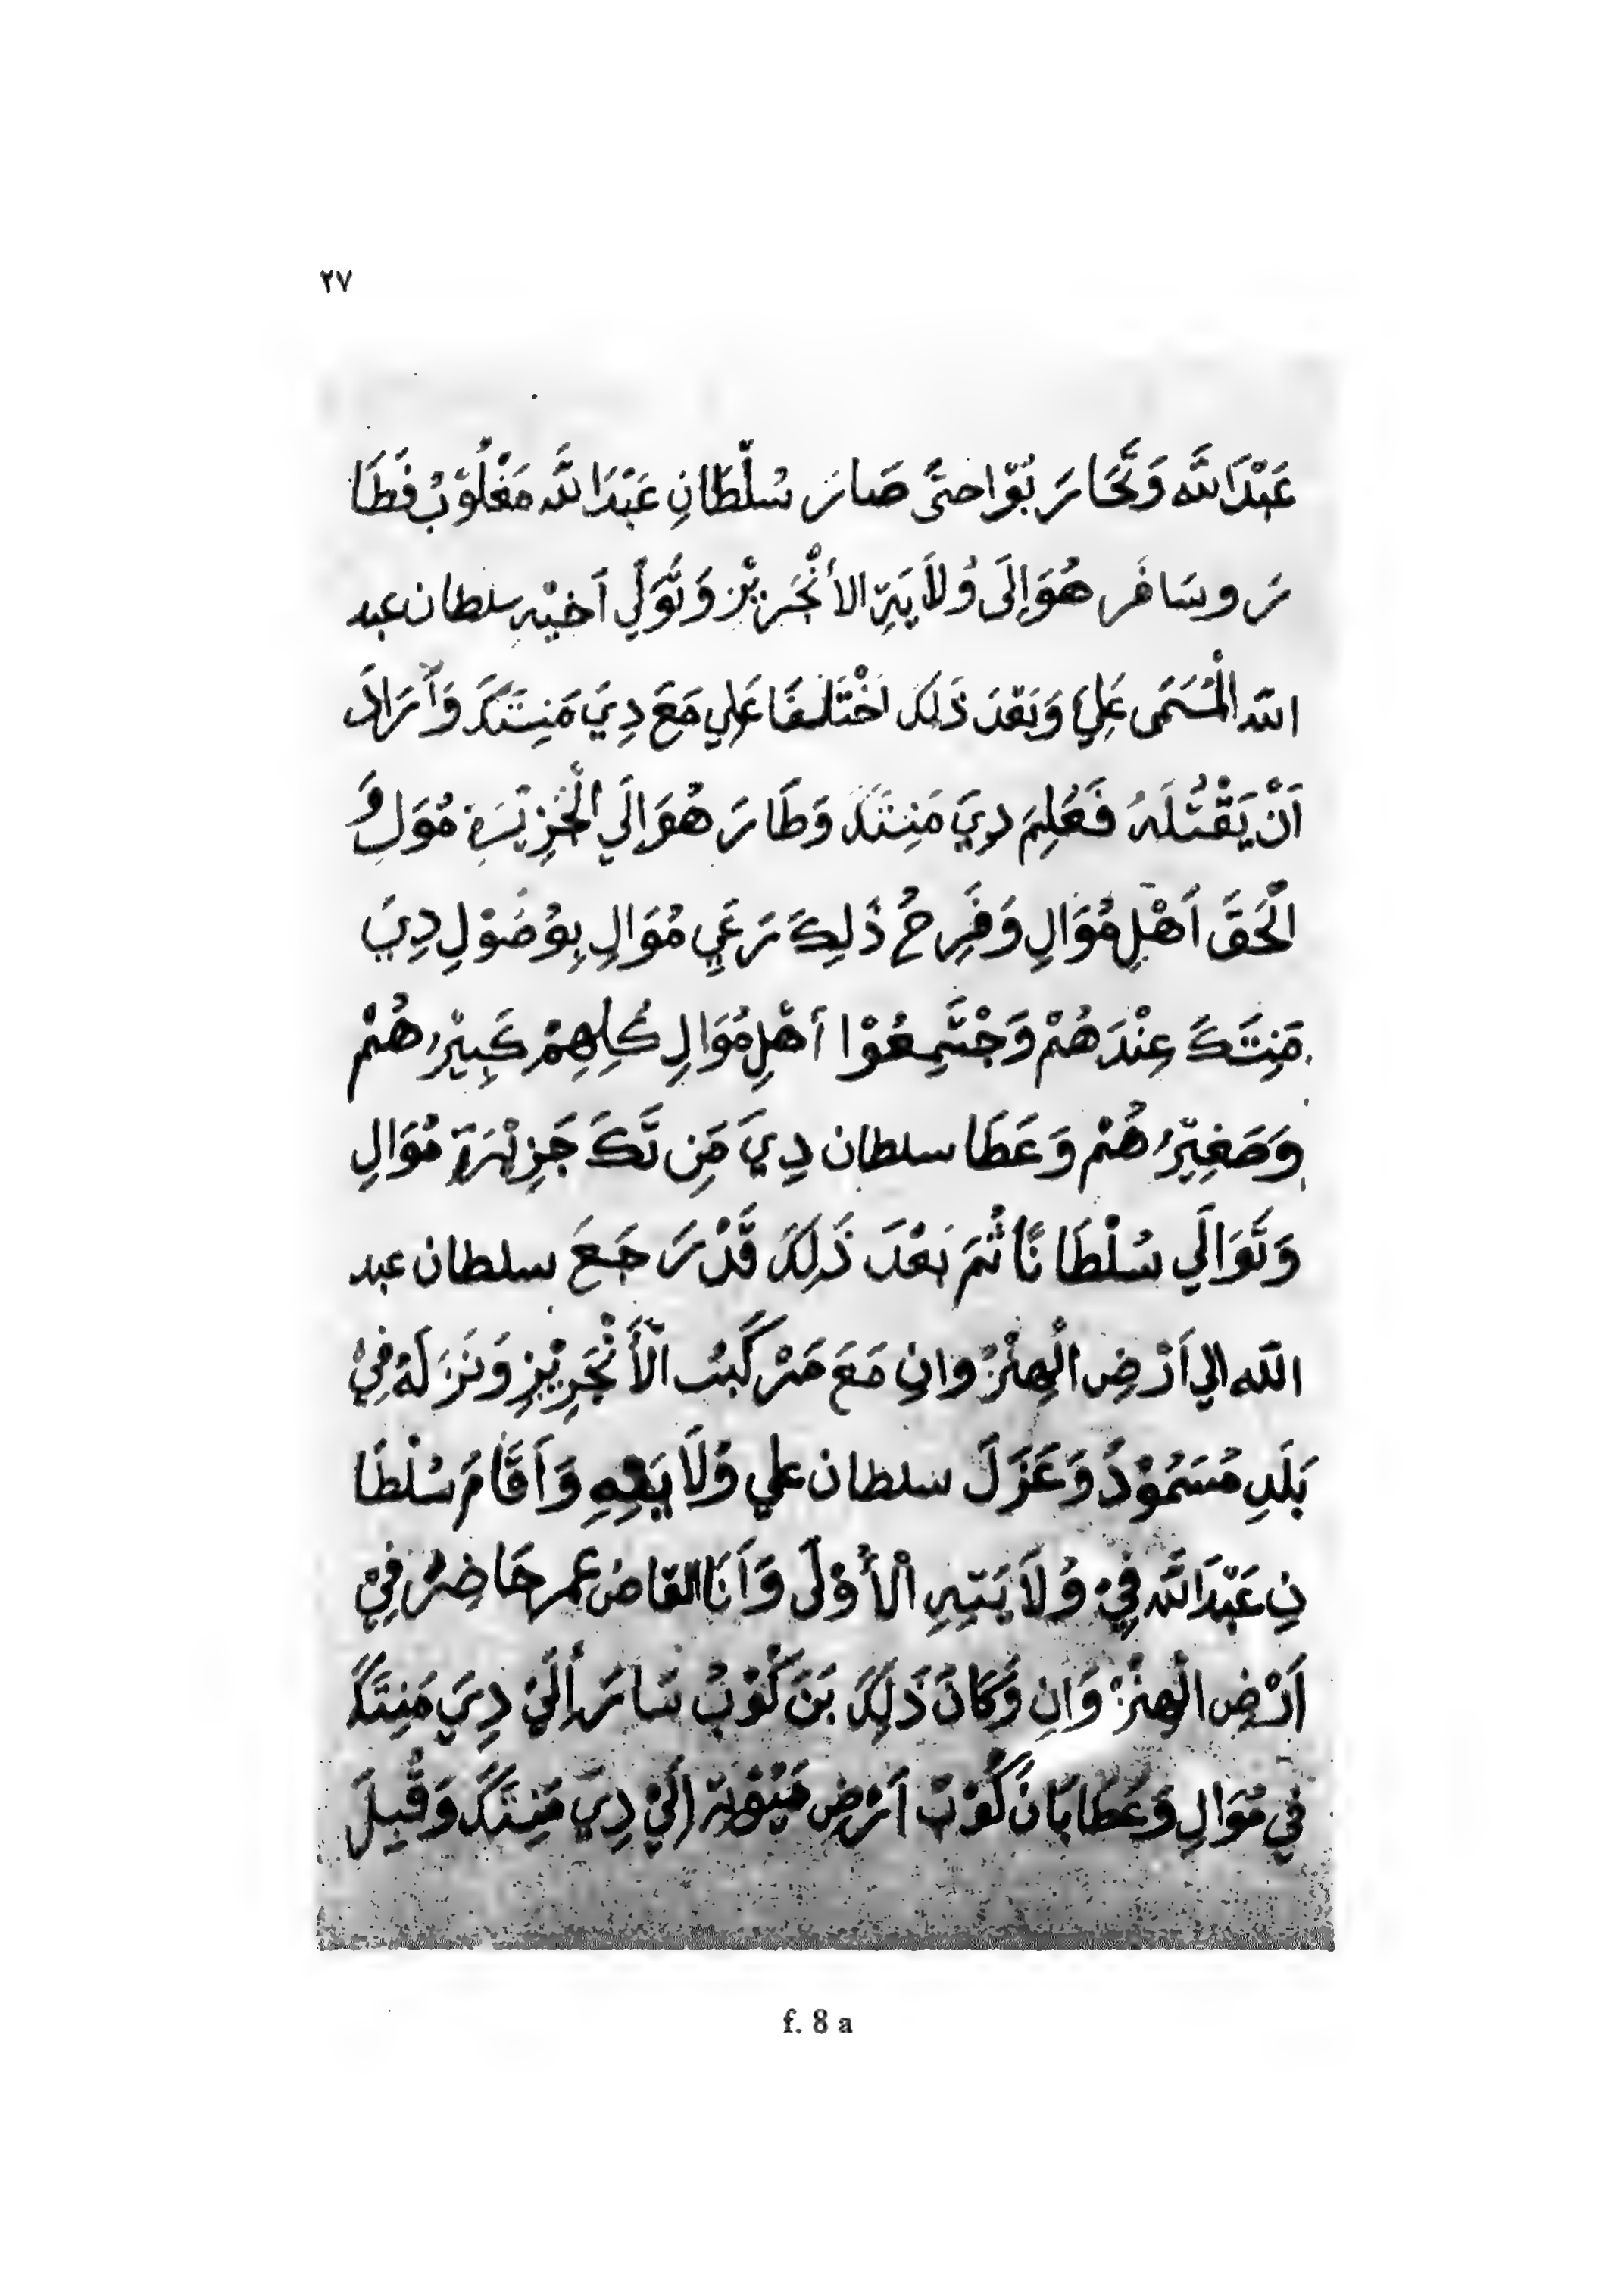 ٢٧
عَبْدَاللَّه وَتَّحَارَبُوّا حتَّى صَارَ سُلْطَانِ عَبْدَاللَّه مَغْلُوْبُ فَطَا
رَ وسَافَر هُوَ اِلَى وُلاَيَةِ الأَنْجَرِيْز وَتَّوَلِّي اَخِيْهِ سلطان عبد
الله الْمُسَمَى عَلِي وَبَعْدَ ذَلِكَ اخْتَلَفَا عَلِي مَعَ دِيَ مَنِتَكَ وَاَرَادَ
اَنْ يَقْتُلَهُ فَعُلِمَ دِيَ مَنِتَكَ وَطَارَ هُوَ اِلَي الْجَزِيْرَةِ مُوَالِ وَ
الْحَقَ اَهْلِ مُوَالِ وَفَرِحُ ذَلِكَ رَعَيِ مُوَالِ بِوُصُوْلِ دِيَ
مَنِتَكَ عِنْدَهُمْ وَجْتَمِعُوْا اَهْلِ مُوَالِ كُلِهِمْ كَبِيْرُهُمْ
وَصَغِيْرُهُمْ وَعَطَا سلطان دِيَ مَنِ تَكَ جَزِيْرَةَ مُوَالِ
وَتَّوَالَي سُلْطَانًا ثُمَ بَعْدَ ذَلِكَ قَدْ رَجَعَ سلطان عبد
الله الي اَرْضِ الْهِنْزُوانِ مَعَ مَرْكَبُ الْأَنْجَرِيْزِ وَنَزَلَهُ فِيْ
بَلَدِ مُسَمُوْدُ وَعَزَلَ سلطان علي وُلَايَتِهِ وَاَقَامَ سُلْطَا
نِ عَبْدَاللَّه فِيْ وُلاَيَتِهِ الْأُوْلَى وَاَنَا القاضُ عمر حَاضِرُ فِيْ
اَرْضِ الْهِنْزُوَانِ وَكَانَ ذَلِكَ بَنَ كُوْبُ سَارَ اِلَيْ دِيَ مَنِتَكَ
فِي مُوَالِ وَعَطَا بَانَ كُوْبْ اَرْضِ مَيُوْتَة اِلَيْ دِيَ مَنِتَكَ وَقُبِلَ
f. 8 a